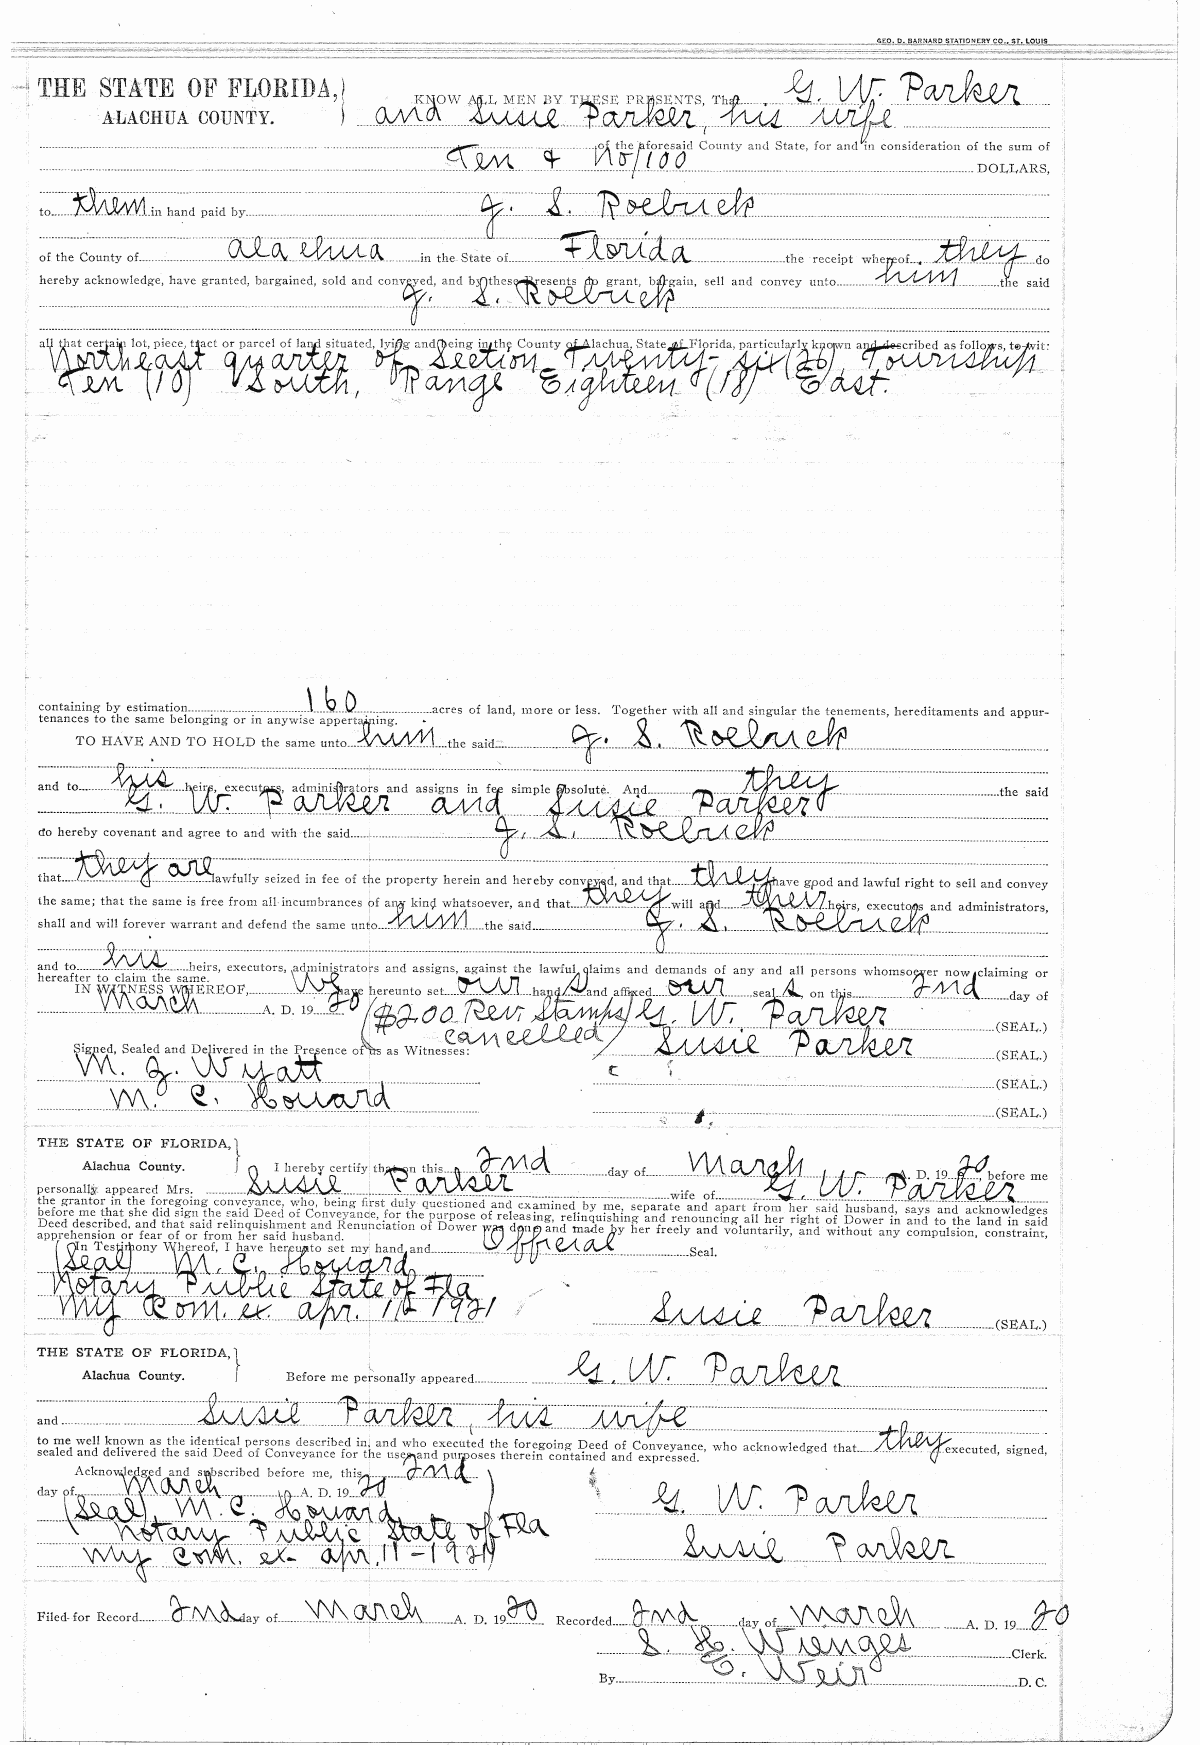 GEO. D. BARNARD STATIONERY CO., ST. LOUIS
THE STATE OF FLORIDA,
ALACHUA COUNTY.
KNOW ALL MEN BY THESE PRESENTS, That G. W. Parker
and Susie Parker, his wife
of the aforesaid County and State, for and in consideration of the sum of
Ten & no/100 DOLLARS,
to them in hand paid by J. S. Roebuck
of the County of Alachua in the State of Florida the receipt whereof they do
hereby acknowledge, have granted, bargained, sold and conveyed, and by these Presents do grant, bargain, sell and convey unto him the said
J. S. Roebuck
all that certain lot, piece, tract or parcel of land situated, lying and being in the County of Alachua, State of Florida, particularly known and described as follows, to-wit:
Northeast quarter of Section Twenty-six (26), Township
Ten (10) South, Range Eighteen (18) East.
containing by estimation 160 acres of land, more or less. Together with all and singular the tenements, hereditaments and appur-
tenances to the same belonging or in anywise appertaining.
TO HAVE AND TO HOLD the same unto him the said J. S. Roebuck
and to his heirs, executors, administrators and assigns in fee simple absolute. And they the said
G. W. Parker and Susie Parker
do hereby covenant and agree to and with the said J. S. Roebuck
that they are lawfully seized in fee of the property herein and hereby conveyed, and that they have good and lawful right to sell and convey
the same; that the same is free from all incumbrances of any kind whatsoever, and that they will and their heirs, executors and administrators,
shall and will forever warrant and defend the same unto him the said J. S. Roebuck
and to his heirs, executors, administrators and assigns, against the lawful claims and demands of any and all persons whomsoever now claiming or
hereafter to claim the same.
IN WITNESS WHEREOF, We have hereunto set our hand s and affixed our seal s, on this 2nd day of
March A. D. 19 20 ($2.00 Rev. Stamps G. W. Parker (SEAL.)
cancelled) Susie Parker (SEAL.)
Signed, Sealed and Delivered in the Presence of us as Witnesses:
M. J. Wyatt (SEAL.)
M. C. Houard (SEAL.)
THE STATE OF FLORIDA,
Alachua County.
I hereby certify that on this 2nd day of March A. D. 19 20, before me
personally appeared Mrs. Susie Parker wife of G. W. Parker
the grantor in the foregoing conveyance, who, being first duly questioned and examined by me, separate and apart from her said husband, says and acknowledges
before me that she did sign the said Deed of Conveyance, for the purpose of releasing, relinquishing and renouncing all her right of Dower in and to the land in said
Deed described, and that said relinquishment and Renunciation of Dower was done and made by her freely and voluntarily, and without any compulsion, constraint,
apprehension or fear of or from her said husband.
In Testimony Whereof, I have hereunto set my hand and Official Seal.
(Seal) M. C. Houard
Notary Public State of Fla
My Com. ex. apr. 11 1921
Susie Parker (SEAL.)
THE STATE OF FLORIDA,
Alachua County.
Before me personally appeared G. W. Parker
and Susie Parker, his wife
to me well known as the identical persons described in, and who executed the foregoing Deed of Conveyance, who acknowledged that they executed, signed,
sealed and delivered the said Deed of Conveyance for the uses and purposes therein contained and expressed.
Acknowledged and subscribed before me, this 2nd
day of March A. D. 19 20
(Seal) M. C. Houard
Notary Public State of Fla
My Com. ex- apr. 11-1921
G. W. Parker
Susie Parker
Filed for Record 2nd day of March A. D. 19 20 Recorded 2nd day of March A. D. 19 20
S. H. Wienges Clerk.
By E. Weir D. C.